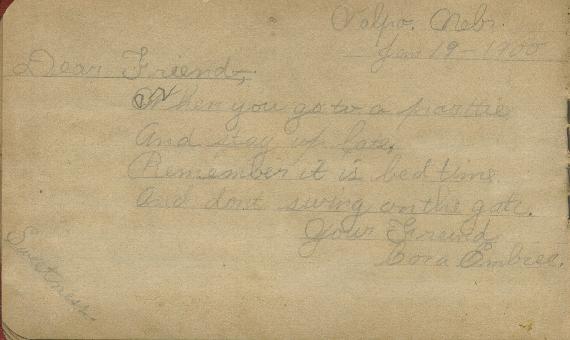 Valpo. Nebr.
Jan 19 - 1900
Dear Friend,
When you go to a parttie
And stay up late,
Remember it is bed time
And dont swing on the gate.
Your Freind
Cora Embree.
Sweetness.